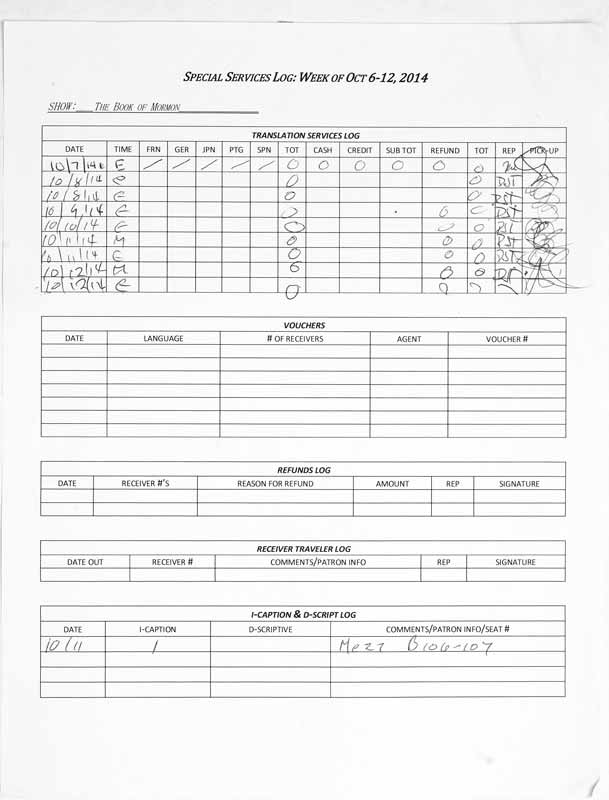 SPECIAL SERVICES LOG: WEEK OF OCT 6-12, 2014
SHOW: THE BOOK OF MORMON
TRANSLATION SERVICES LOG
DATE TIME FRN GER JPN PTG SPN TOT CASH CREDIT SUB TOT REFUND TOT REP PICK-UP
10/7/14 E / / / / / 0 0 0 0 0 0
10/8/14 0 0 DST
10/8/14 E 0 0 DST
10/9/14 E 0 0 0 DST
10/10/14 E 0 0 0 DST
10/11/14 M 0 0 0 DST
10/11/14 E 0 0 0 DST
10/12/14 M 0 0 0 DST
10/12/14 E 0 0
VOUCHERS
DATE LANGUAGE # OF RECEIVERS AGENT VOUCHER #
REFUNDS LOG
DATE RECEIVER #'S REASON FOR REFUND AMOUNT REP SIGNATURE
RECEIVER TRAVELER LOG
DATE OUT RECEIVER # COMMENTS/PATRON INFO REP SIGNATURE
I-CAPTION & D-SCRIPT LOG
DATE I-CAPTION D-SCRIPTIVE COMMENTS/PATRON INFO/SEAT #
10/11 1 Mezz B106-107